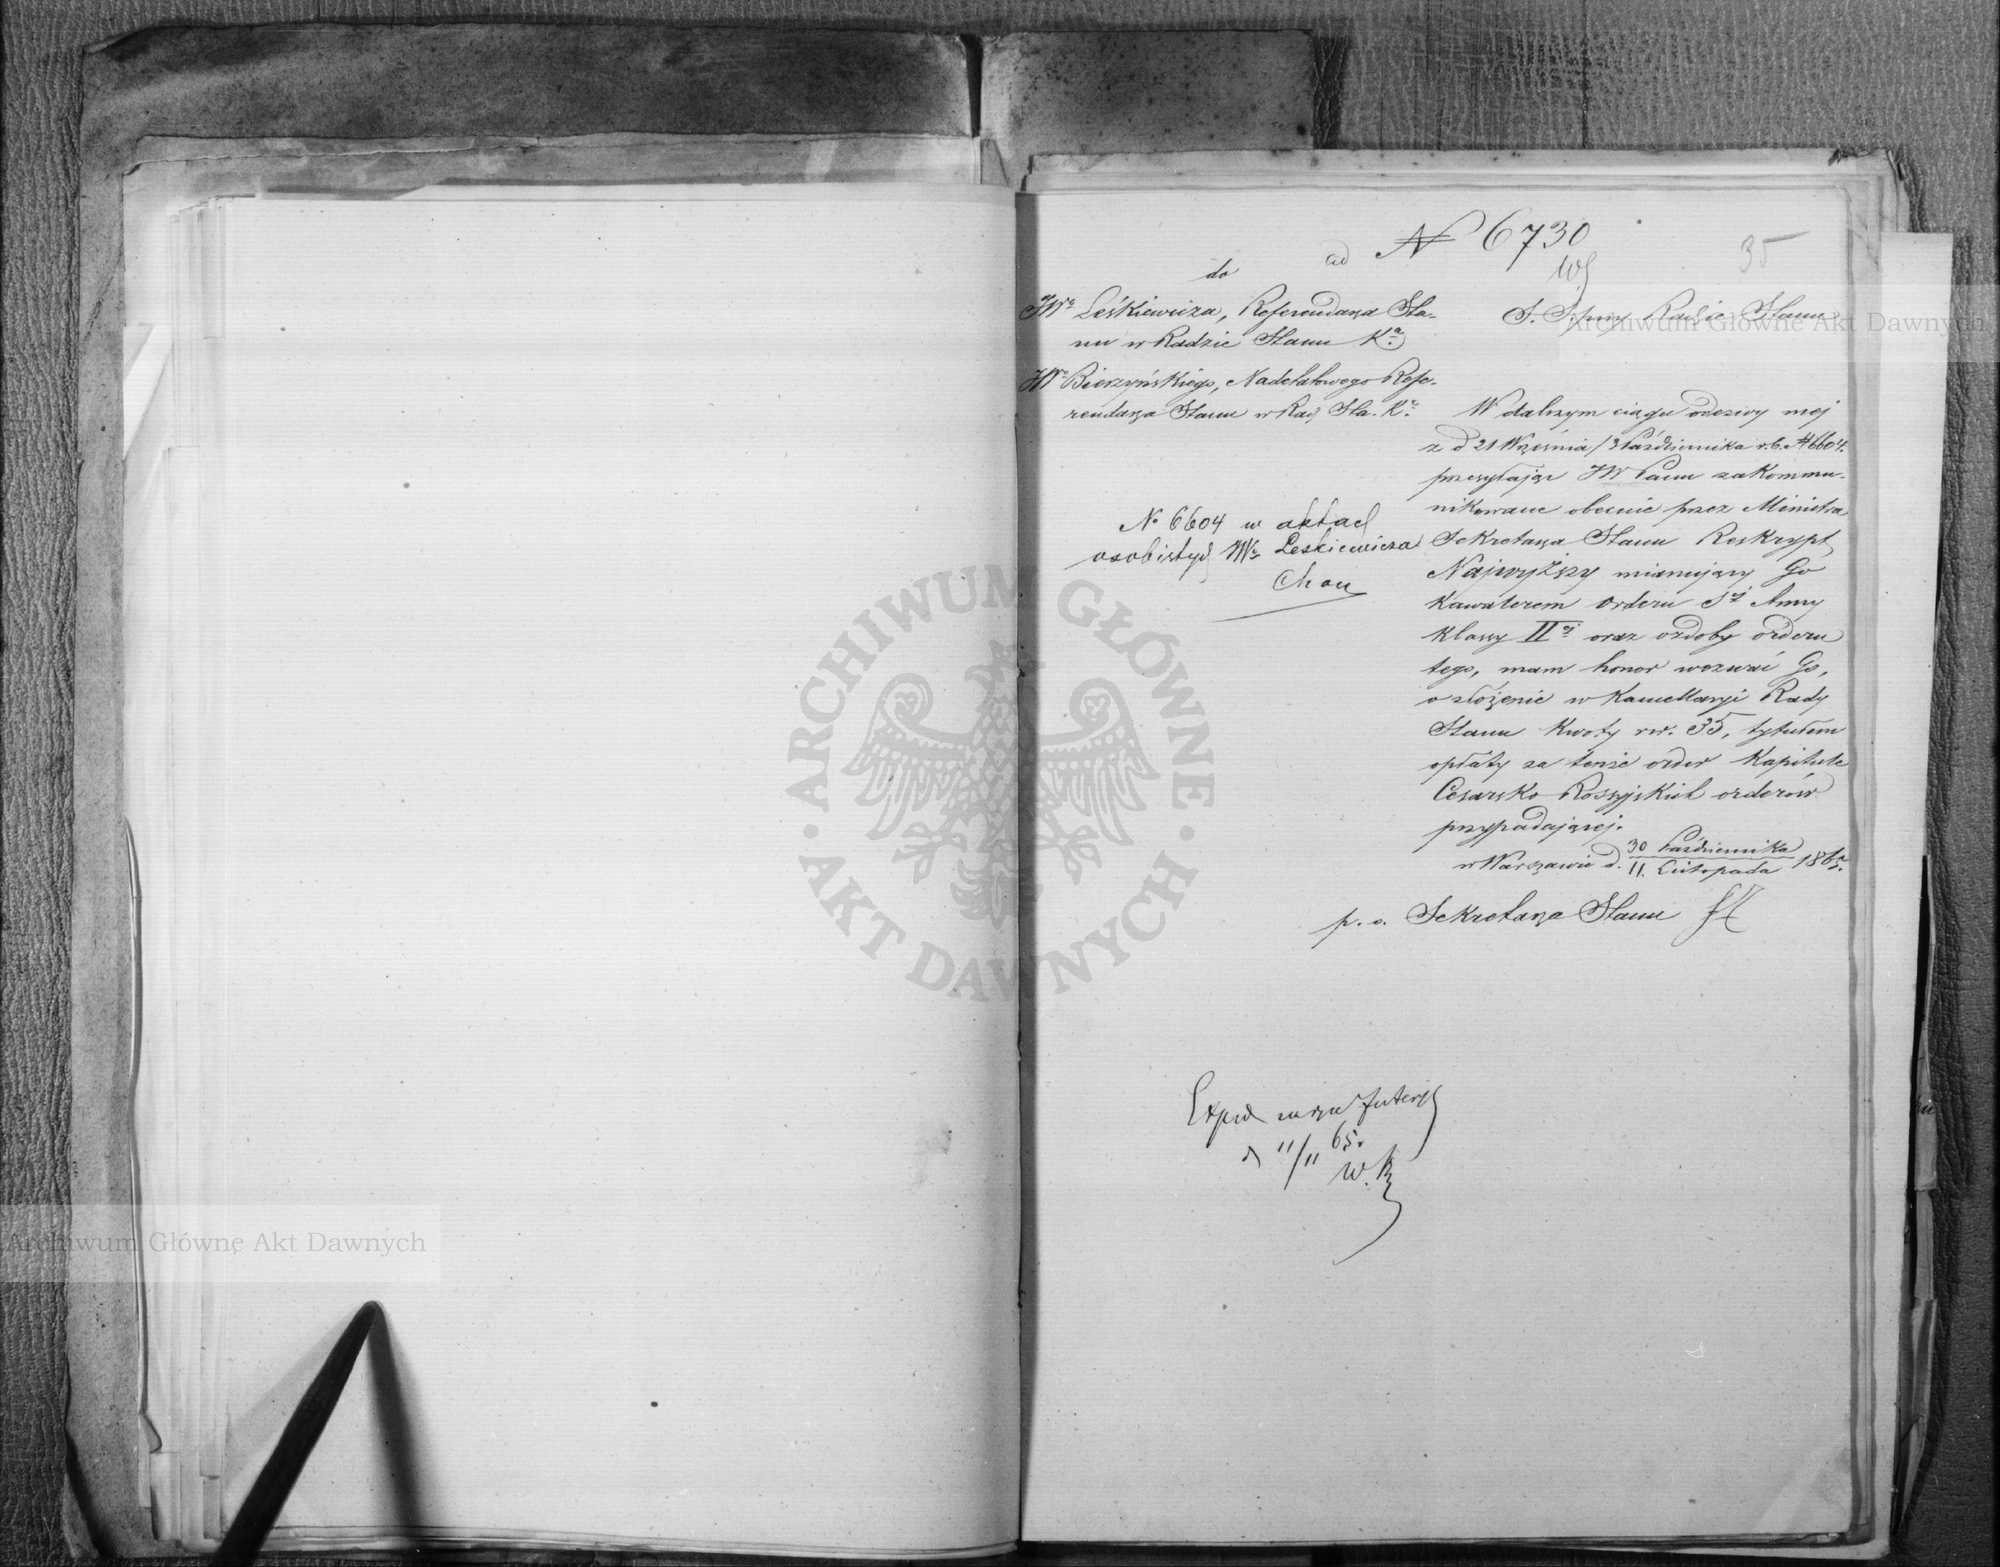 ad № 6730
35
do
JWo Leśkiewicza, Referendarza Sta-
nu w Radzie Stanu Ka
JWo Bierzyńskiego, Nadetatowego Refe-
rendarza Stanu w Rad. Sta. Ka
№ 6604 w aktach
osobistych JWo Leskiewicza
S. S. przy Radzie Stanu
W dalszym ciągu odezwy mej
z d 21 Września/3 Października r.b. № 6604.
przesyłając JW Panu zakommu-
nikowane obecnie przez Ministra
Sekretarza Stanu Reskrypt
Najwyższy mianujący Go
Kawalerem Orderu Sej Anny
klassy IIej oraz ozdoby orderu
tego, mam honor wezwać Go,
o złożenie w Kancellaryi Rady
Stanu Kwoty rsr. 35, tytułem
opłaty za tenże order Kapitule
Cesarsko Rossyjskich orderów
przypadającej.
w Warszawie d. 30 Października / 11. Listopada 1865.
p. o. Sekretarza Stanu
d 11/11 65.
W. R
Archiwum Główne Akt Dawnych
ARCHIWUM GŁÓWNE AKT DAWNYCH
Archiwum Główne Akt Dawnych